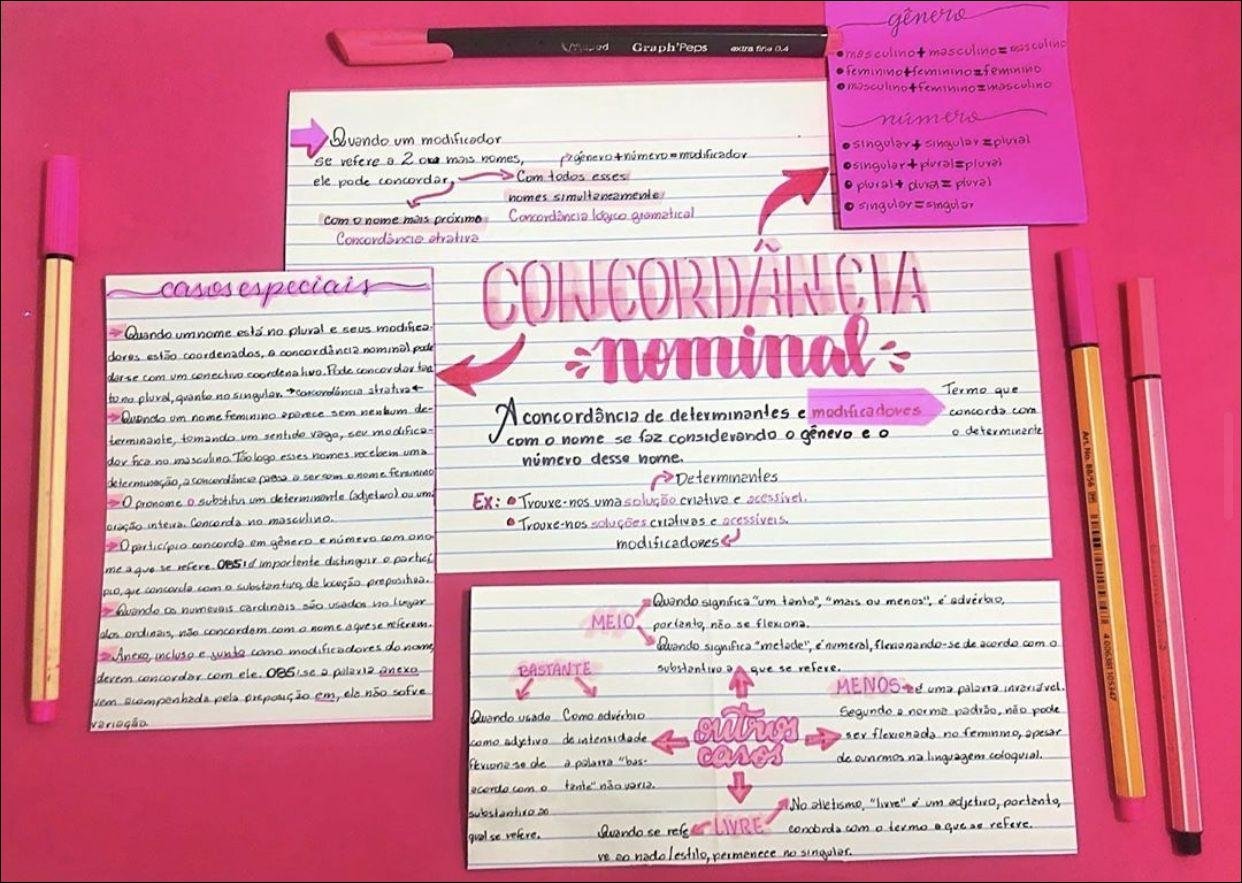 Maped Graph'Peps extra fine 0.4
gênero
masculino+masculino=masculino
feminino+feminino=feminino
masculino+feminino=masculino
número
singular+singular=plural
singular+plural=plural
plural+plural=plural
singular=singular
Quando um modificador
se refere a 2 ou mais nomes,
ele pode concordar,
gênero+número=modificador
Com todos esses
nomes simultaneamente
Concordância lógico gramatical
com o nome mais próximo
Concordância atrativa
CONCORDÂNCIA
nominal
A concordância de determinantes e modificadores
com o nome se faz considerando o gênero e o
número desse nome.
Termo que
concorda com
o determinante
Determinantes
Ex: Trouxe-nos uma solução criativa e acessível.
Trouxe-nos soluções criativas e acessíveis.
modificadores
casos especiais
Quando um nome está no plural e seus modifica-
dores estão coordenados, a concordância nominal pode
dar-se com um conectivo coordenativo. Pode concordar tan
to no plural, quanto no singular. →concordância atrativa←
Quando um nome feminino aparece sem nenhum de-
terminante, tomando um sentido vago, seu modifica-
dor fica no masculino. Tão logo esses nomes recebem uma
determinação, a concordância passa a ser com o nome feminino
O pronome o substitui um determinante (adjetivo) ou uma
oração inteira. Concorda no masculino.
O particípio concorda em gênero e número com o no
me a que se refere. OBS: é importante distinguir o particí
pio, que concorda com o substantivo, da locução prepositiva.
Quando os numerais cardinais são usados no lugar
dos ordinais, não concordam com o nome a que se referem.
Anexo, incluso e junto como modificadores do nome,
devem concordar com ele. OBS: se a palavra anexo
vem acompanhada pela preposição em, ela não sofre
variação.
MEIO
Quando significa "um tanto", "mais ou menos", é advérbio,
portanto, não se flexiona.
Quando significa "metade", é numeral, flexionando-se de acordo com o
substantivo a que se refere.
BASTANTE
Quando usado
como adjetivo
flexiona-se de
acordo com o
substantivo ao
qual se refere.
Como advérbio
de intensidade
a palavra "bas-
tante" não varia.
outros
casos
MENOS é uma palavra invariável.
Segundo a norma padrão, não pode
ser flexionada no feminino, apesar
de ouvirmos na linguagem coloquial.
LIVRE
No atletismo, "livre" é um adjetivo, portanto,
concorda com o termo a que se refere.
Quando se refe
re ao nado/estilo, permanece no singular.
Art. No. 88/56
4 006381 105347